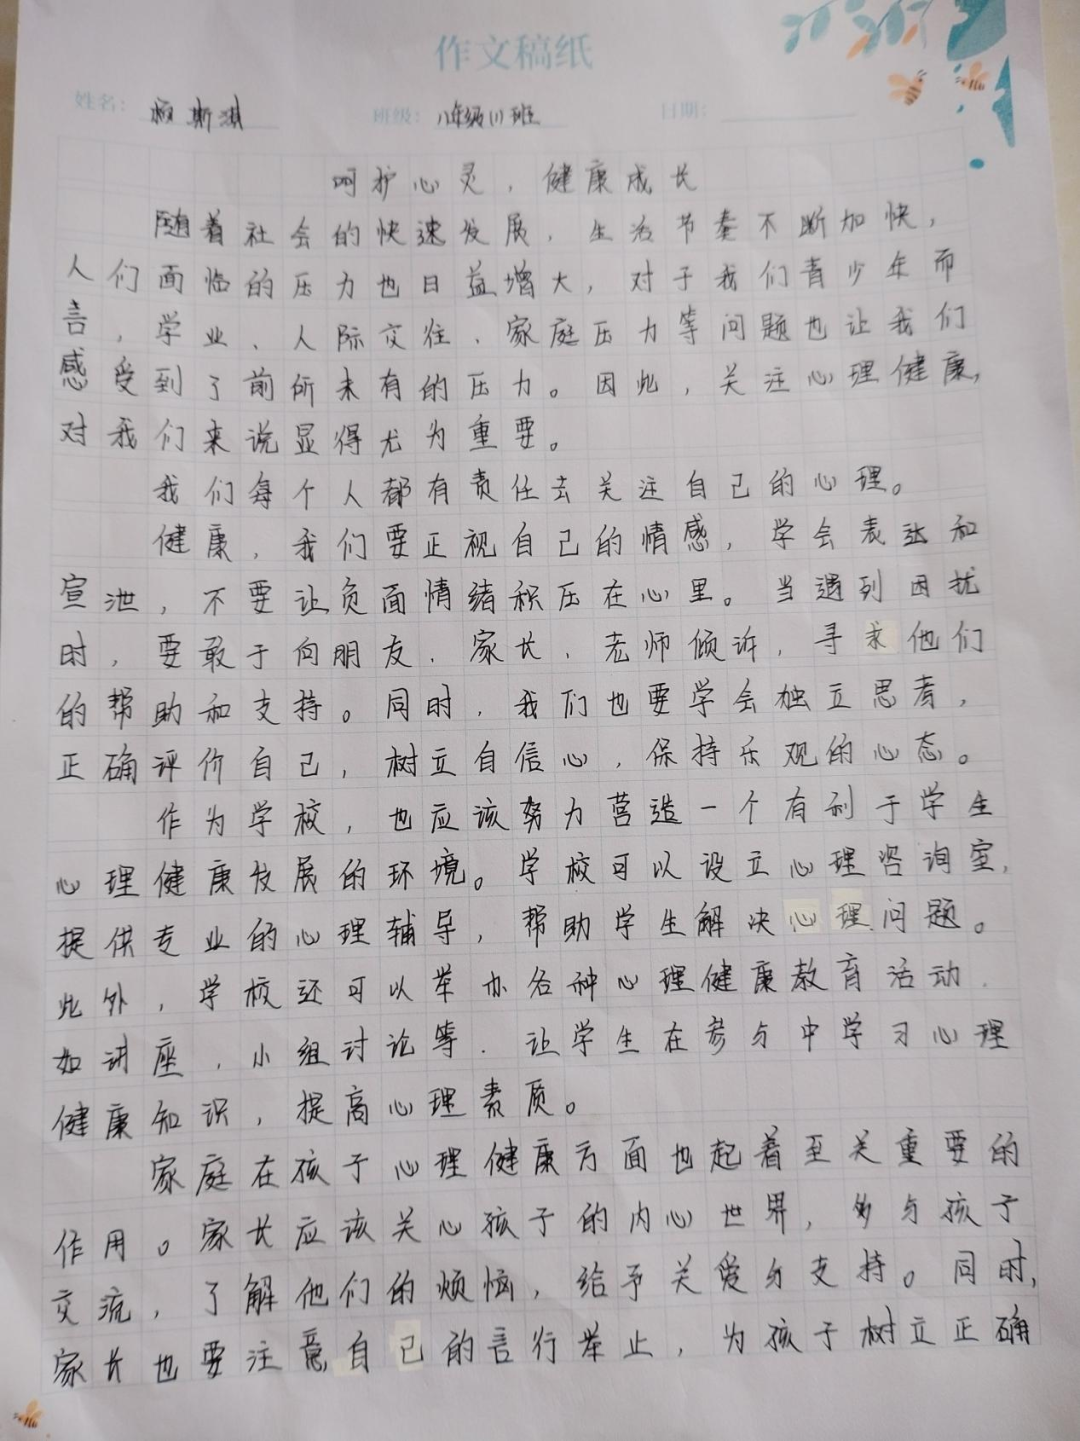 作文稿纸
姓名： 斯淇 班级：八年级(1)班 日期：
呵护心灵，健康成长
随着社会的快速发展，生活节奏不断加快，
人们面临的压力也日益增大，对于我们青少年而
言，学业、人际交往、家庭压力等问题也让我们
感受到了前所未有的压力。因此，关注心理健康，
对我们来说显得尤为重要。
我们每个人都有责任去关注自己的心理。
健康，我们要正视自己的情感，学会表达和
宣泄，不要让负面情绪积压在心里。当遇到困扰
时，要敢于向朋友、家长、老师倾诉，寻求他们
的帮助和支持。同时，我们也要学会独立思考，
正确评价自己，树立自信心，保持乐观的心态。
作为学校，也应该努力营造一个有利于学生
心理健康发展的环境。学校可以设立心理咨询室，
提供专业的心理辅导，帮助学生解决心理问题。
此外，学校还可以举办各种心理健康教育活动，
如讲座，小组讨论等．让学生在参与中学习心理
健康知识，提高心理素质。
家庭在孩子心理健康方面也起着至关重要的
作用。家长应该关心孩子的内心世界，多与孩子
交流，了解他们的烦恼，给予关爱与支持。同时，
家长也要注意自己的言行举止，为孩子树立正确